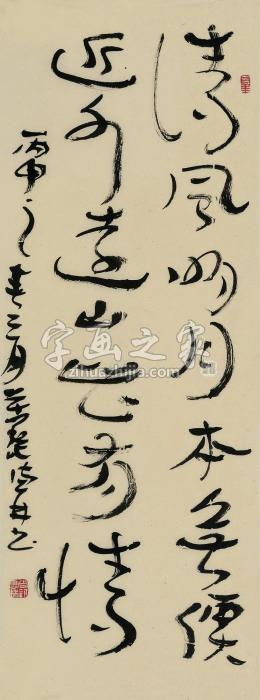 清風明月本無價
近水遠山皆有情
丙申之春三月
字画之家
zihuazhijia.com